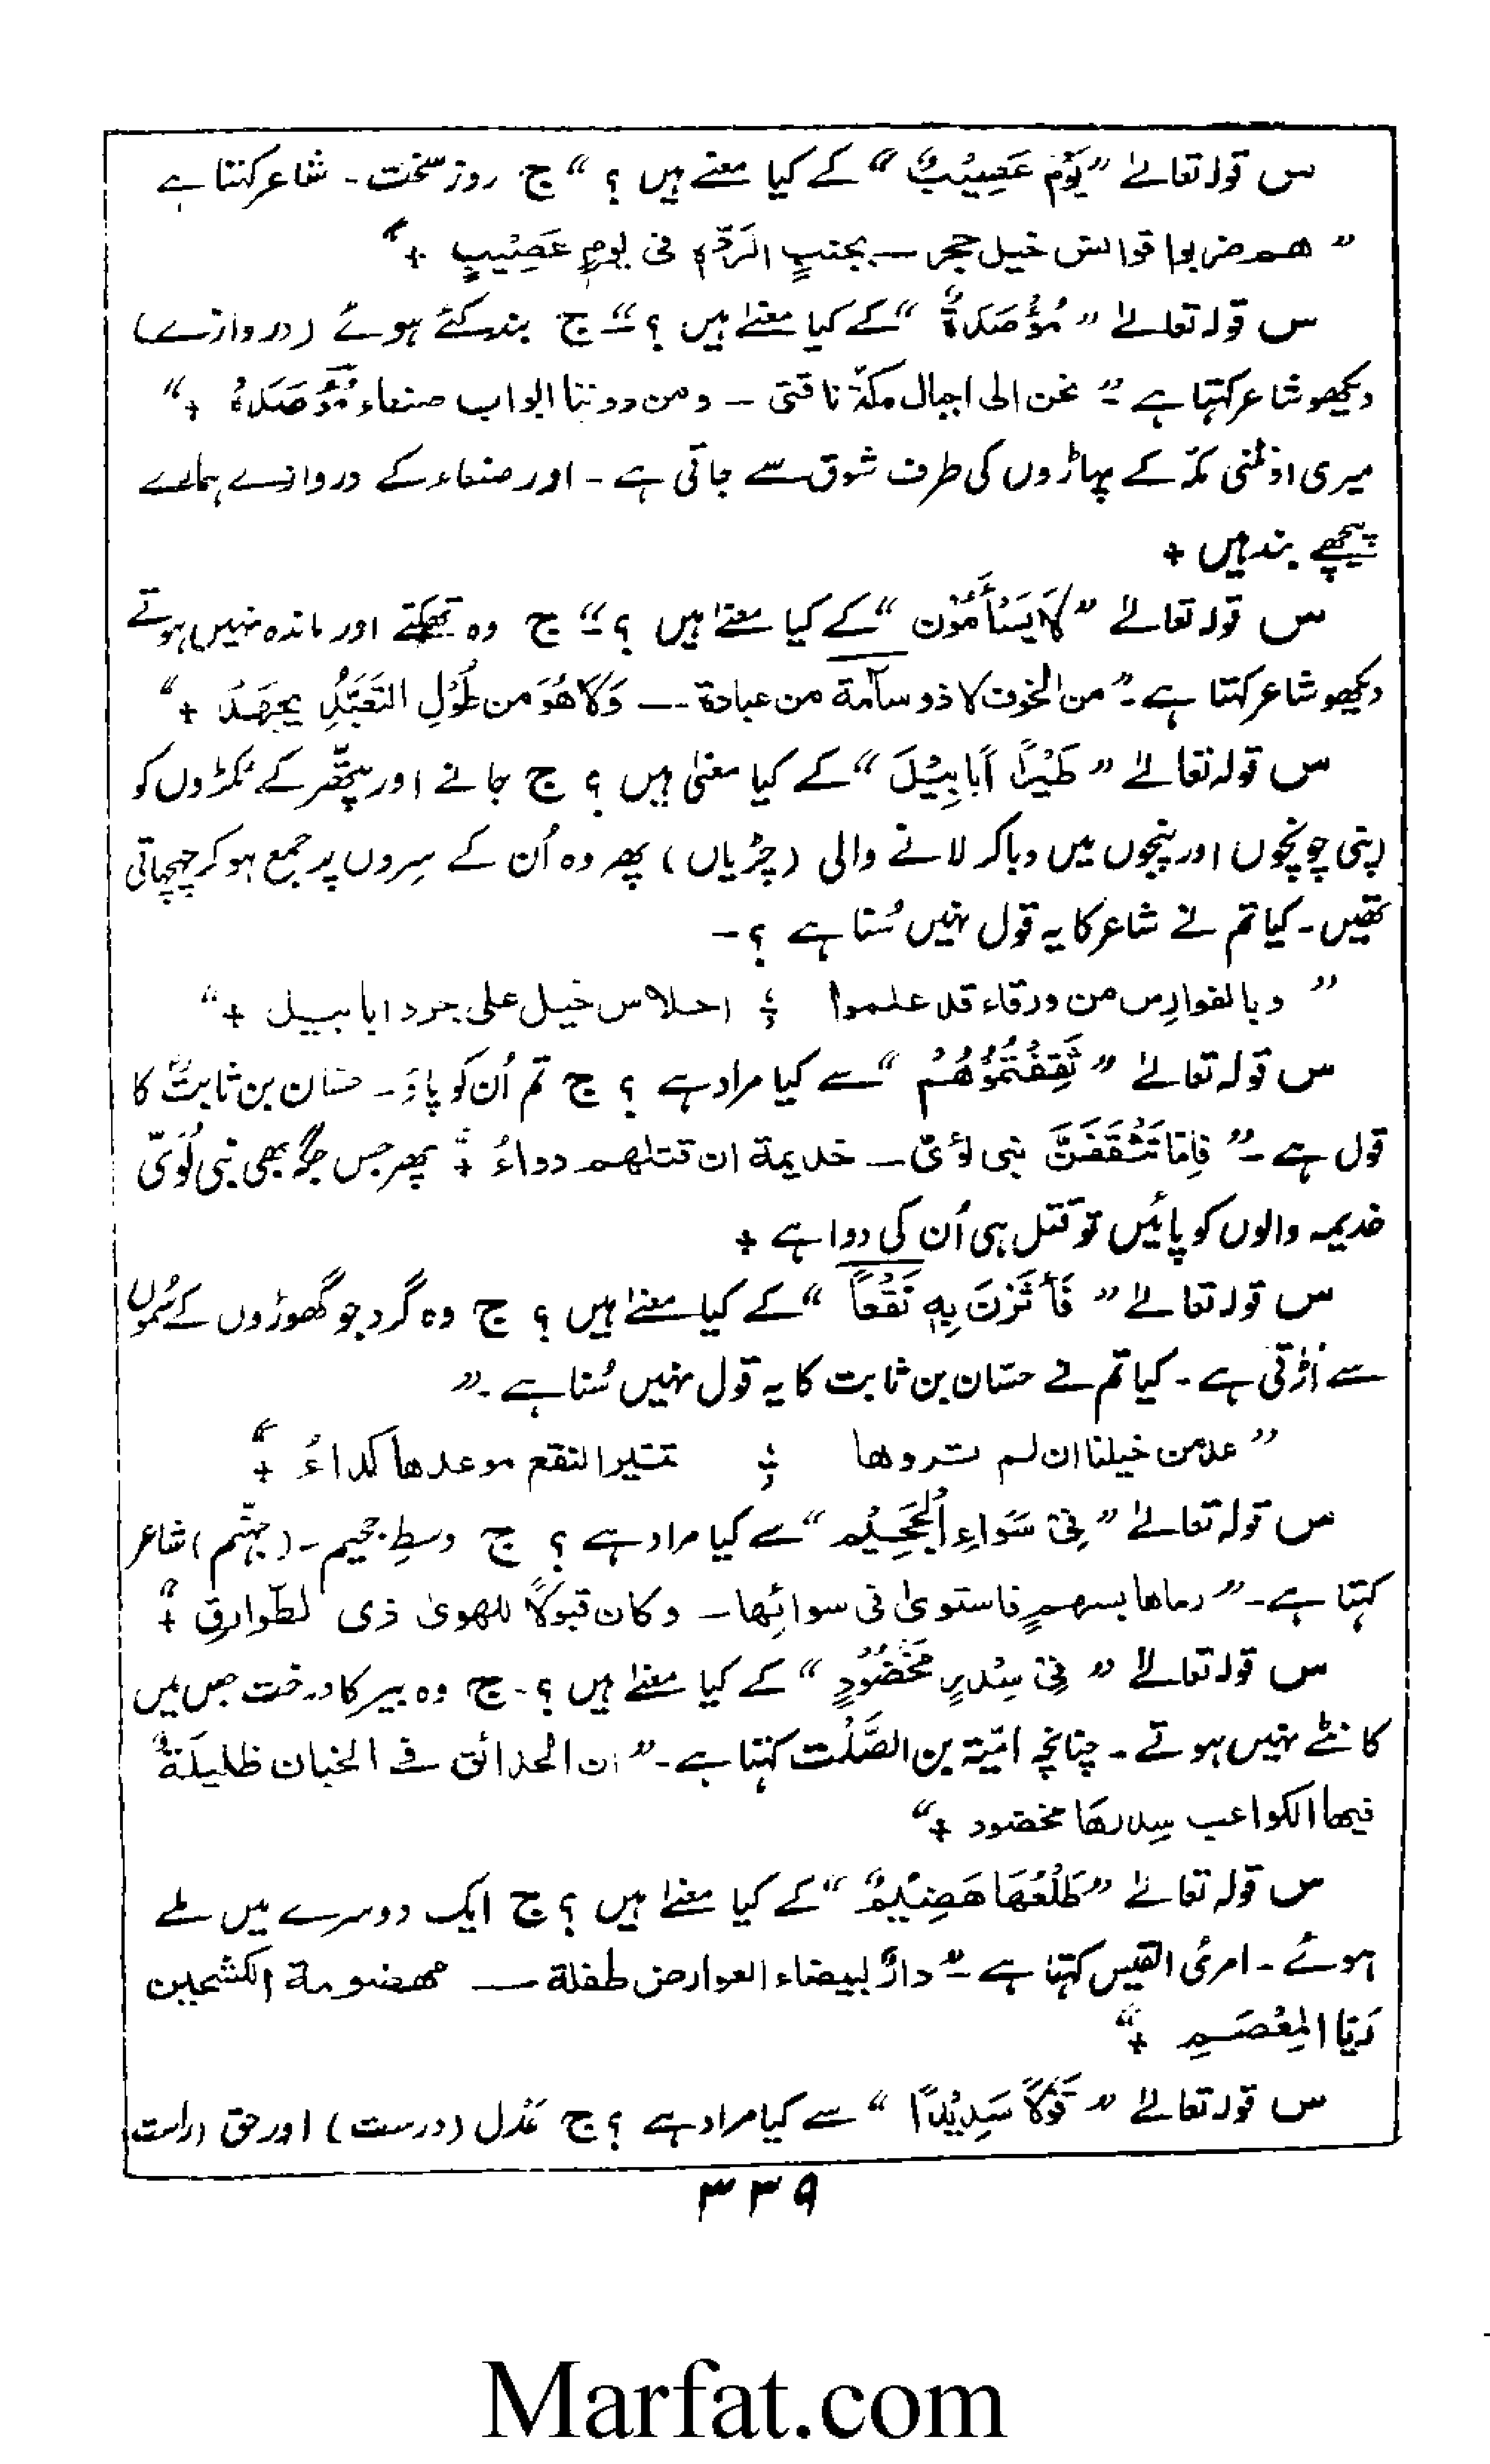 س قولہ تعالےٰ ”یَوْمٌ عَصِیْبٌ“ کے کیا معنے ہیں ؟ “ ج روز سخت ۔ شاعر کہتا ہے
” هم ضربوا قوانس خيل حجر ـــ بجنبِ الرَدّمِ فی یومٍ عَصِیْبٍ +“
س قولہ تعالےٰ ” مُؤْصَدَةٌ “ کے کیا معنےٰ ہیں ؟ “ ج بند کئے ہوئے (دروازے)
دیکھو شاعر کہتا ہے ” تحن الی اجبال مکّة ناقتی ــ ومن دوننا ابواب صنعاء مُؤْصَدَةُ +“
میری اونٹنی مکّہ کے پہاڑوں کی طرف شوق سے جاتی ہے ۔ اور صنعاء کے دروازے ہمارے
پیچھے بند ہیں +
س قولہ تعالےٰ ” لَا یَسْأَمُوْن “ کے کیا معنےٰ ہیں ؟ “ ج وہ تھکتے اور ماندہ نہیں ہوتے
دیکھو شاعر کہتا ہے ” من الخوف لا ذو سآمة من عبادة ــ وَلَا هُوَ من طُوْلِ التَعَبُّدِ یجھَدُ +“
س قولہ تعالےٰ ” طَیْرًا اَبَابِیْلَ “ کے کیا معنیٰ ہیں ؟ ج جانے اور پتّھر کے ٹکڑوں کو
اپنی چونچوں اور پنجوں میں دبا کر لانے والی (چڑیاں) پھر وہ اُن کے سِروں پر جمع ہو کر چہچہاتی
تھیں ۔ کیا تم نے شاعر کا یہ قول نہیں سُنا ہے ؟ ۔
” وبالفوارس من ورقاء قد علموا ؛ احلاس خیل علی جرد ابابیل +“
س قولہ تعالےٰ ” ثَقِفْتُمُوْهُمْ “ سے کیا مراد ہے ؟ ج تم اُن کو پاؤ ۔ حسّان بن ثابتؓ کا
قول ہے ۔ ” فَاِمَّا تَثْقَفَنَّ بنی لؤیّ ــ خدیمة ان قتلهم دواءُ + پھر جس جگہ بھی بنی لُوَیّ
خدیمہ والوں کو پائیں تو قتل ہی اُن کی دوا ہے +
س قولہ تعالےٰ ” فَأَثَرْنَ بِهٖ نَقْعًا “ کے کیا معنےٰ ہیں ؟ ج وہ گرد جو گھوڑوں کے سُموں
سے اُڑتی ہے ۔ کیا تم نے حسّان بن ثابت کا یہ قول نہیں سُنا ہے ۔ ”
” عدمن خیلنا ان لم تروها ؛ تثیر النقع موعدها کداءُ +“
س قولہ تعالےٰ ” فِیْ سَوَاءِ الْجَحِیْمِ “ سے کیا مراد ہے ؟ ج وسطِ جحیم ۔ (جہنّم) شاعر
کہتا ہے ۔ ” رماها بسهمٍ فاستویٰ فی سوائها ــ وکان قبولًا للهویٰ ذی لطّوارق +“
س قولہ تعالےٰ ” فِیْ سِدْرٍ مَخْضُوْدٍ “ کے کیا معنےٰ ہیں ؟ ۔ ج وہ بیر کا درخت جس میں
کانٹے نہیں ہوتے ۔ چنانچہ امّیّة بن الصَّلْت کہتا ہے ۔ ” ان الحدائق فے الجنان ظلیلَةٌ
فیها الکواعب سِدرهَا مخضود +“
س قولہ تعالےٰ ” طَلْعُهَا هَضِیْمٌ “ کے کیا معنےٰ ہیں ؟ ج ایک دوسرے میں ملے
ہوئے ۔ امرئ القیس کہتا ہے ” دارٌ لبیضاء العوارض طفلة ــ مهضومة الکشحین
رَیَّا المِعْصَمِ +“
س قولہ تعالےٰ ” قَوْلًا سَدِیْدًا “ سے کیا مراد ہے ؟ ج عَدل (درست) اور حق (راست
۳۳۹
Marfat.com